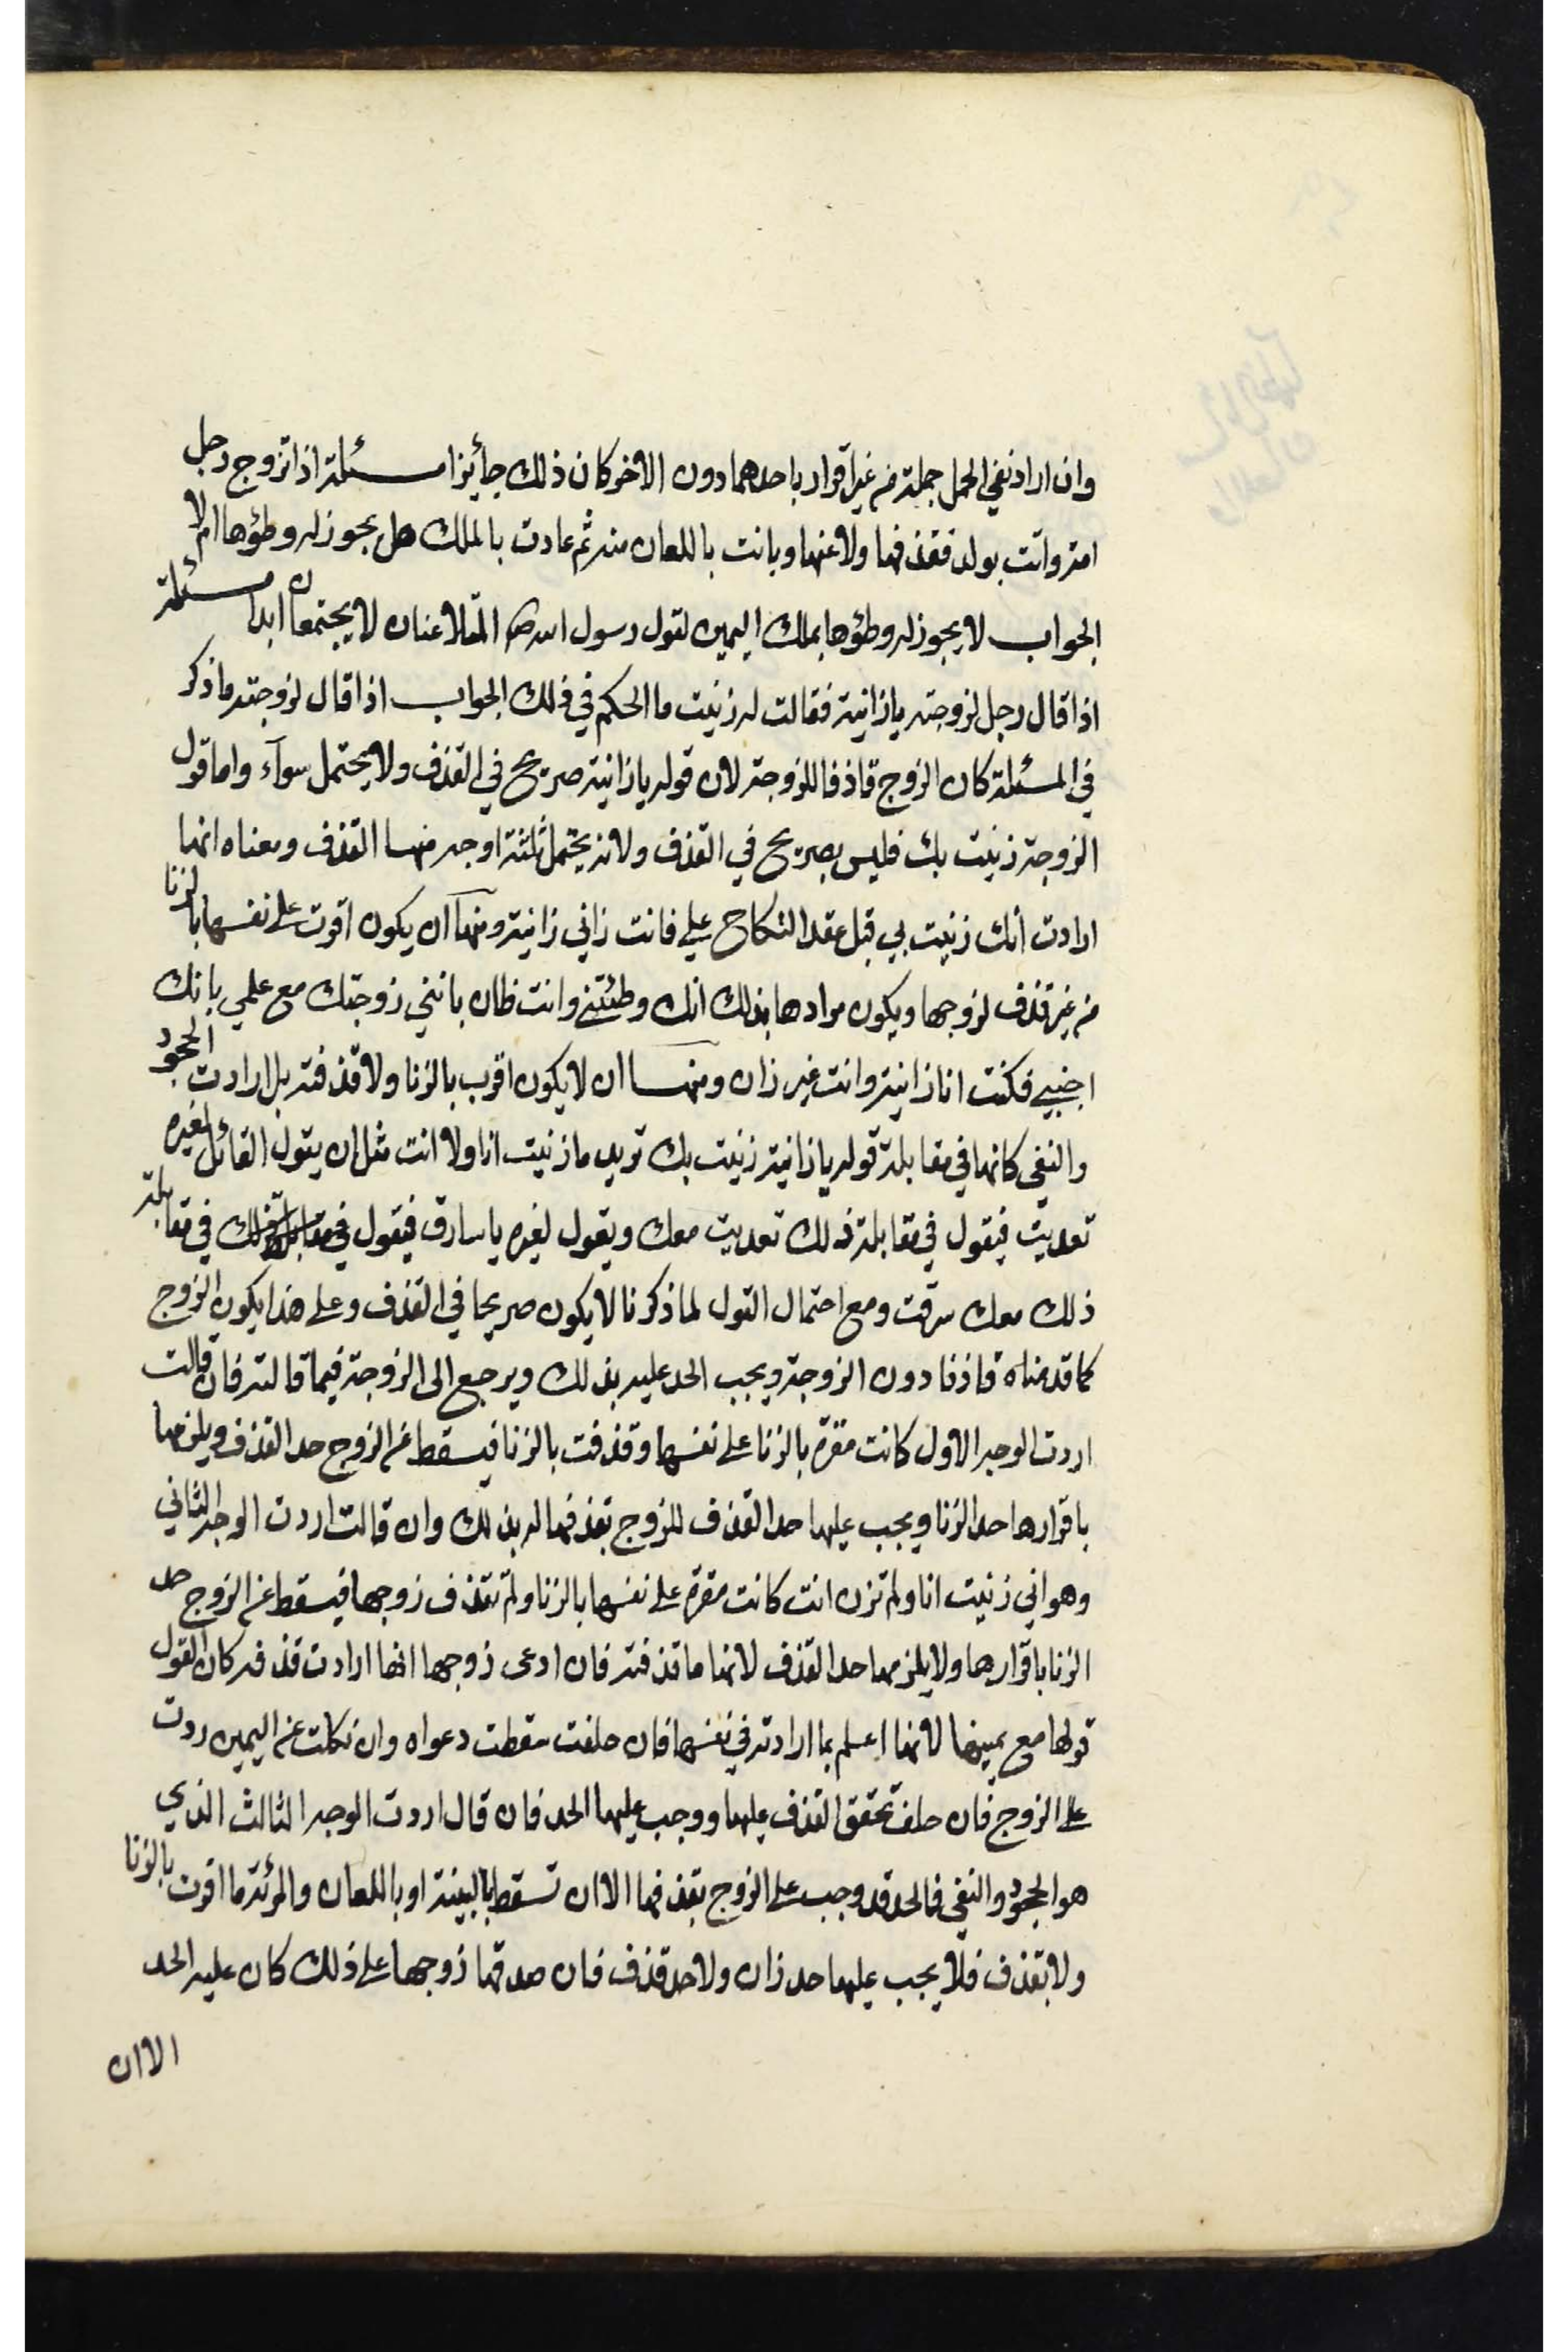 وان اراد نفي الحمل جملة من غير اقرار باحدهما دون الاخر كان ذلك جائزا مسئلة اذا تزوج رجل
امة واتت بولد فقذفها ولاعنها وبانت باللعان منه ثم عادت بالملك هل يجوز له وطؤها ام لا
الجواب لا يجوز له وطؤها بملك اليمين لقول رسول الله ص المتلاعنان لا يجتمعان ابدا مسئلة
اذا قال رجل لزوجته يا زانية فقالت له زنيت ما الحكم في ذلك الجواب اذا قال لزوجته ما ذكر
في المسئلة كان الزوج قاذفا للزوجة لان قوله يا زانية صريح في القذف ولا يحتمل سوآء واما قول
الزوجة زنيت بك فليس بصريح في القذف ولانه يحتمل ثلثة اوجه منها القذف ومعناه انها
ارادت أنك زنيت بي قبل عقد النكاح علي فانت زاني زانية ومنها ان يكون اقرت على نفسها بالزنا
من غير قذف لزوجها ويكون مرادها بذلك انك وطئتني وانت ظان بانني زوجتك مع علمي بانك
اجنبي فكنت انا زانية وانت غير زان ومنها ان لا يكون اقرب بالزنا ولا قذفته بل ارادت الجحود
والنفي كانها في مقابلة قوله يا زانية زنيت بك تريد ما زنيت انا ولا انت مثل ان يقول القائل لغيره
تعديت فيقول في مقابلة ذلك تعديت معك ويقول لغيره يا سارق فيقول في مقابلة ذلك في مقابلة
ذلك معك سرقت ومع احتمال القول لما ذكرنا لا يكون صريحا في القذف وعلى هذا يكون الزوج
كما قدمناه قاذفا دون الزوجة ويجب الحد عليه بذلك ويرجع الى الزوجة فيما قالته فان قالت
اردت الوجه الاول كانت مقرة بالزنا على نفسها وقذفت بالزنا فيسقط عن الزوج حد القذف ويلزمها
باقرارها حد الزنا ويجب عليها حد القذف للزوج بقذفها له بذلك وان قالت اردت الوجه الثاني
وهو اني زنيت انا ولم تزن انت كانت مقرة على نفسها بالزنا ولم تقذف زوجها فيسقط عن الزوج حد
الزنا باقرارها ولا يلزمها حد القذف لانها ما قذفته فان ادعى زوجها انها ارادت قذفه كان القول
قولها مع يمينها لانها اعلم بما ارادته في نفسها فان حلفت سقطت دعواه وان نكلت عن اليمين ردت
على الزوج فان حلف تحقق القذف عليها ووجب عليها الحد فان قال اردت الوجه الثالث الذي
هو الجحود والنفي فالحد قد وجب على الزوج بقذفها الا ان تسقط بالبينة او باللعان والمرئة ما اقرت بالزنا
ولا بقذف فلا يجب عليها حد زان ولا حد قذف فان صدقها زوجها على ذلك كان عليه الحد
الا ان